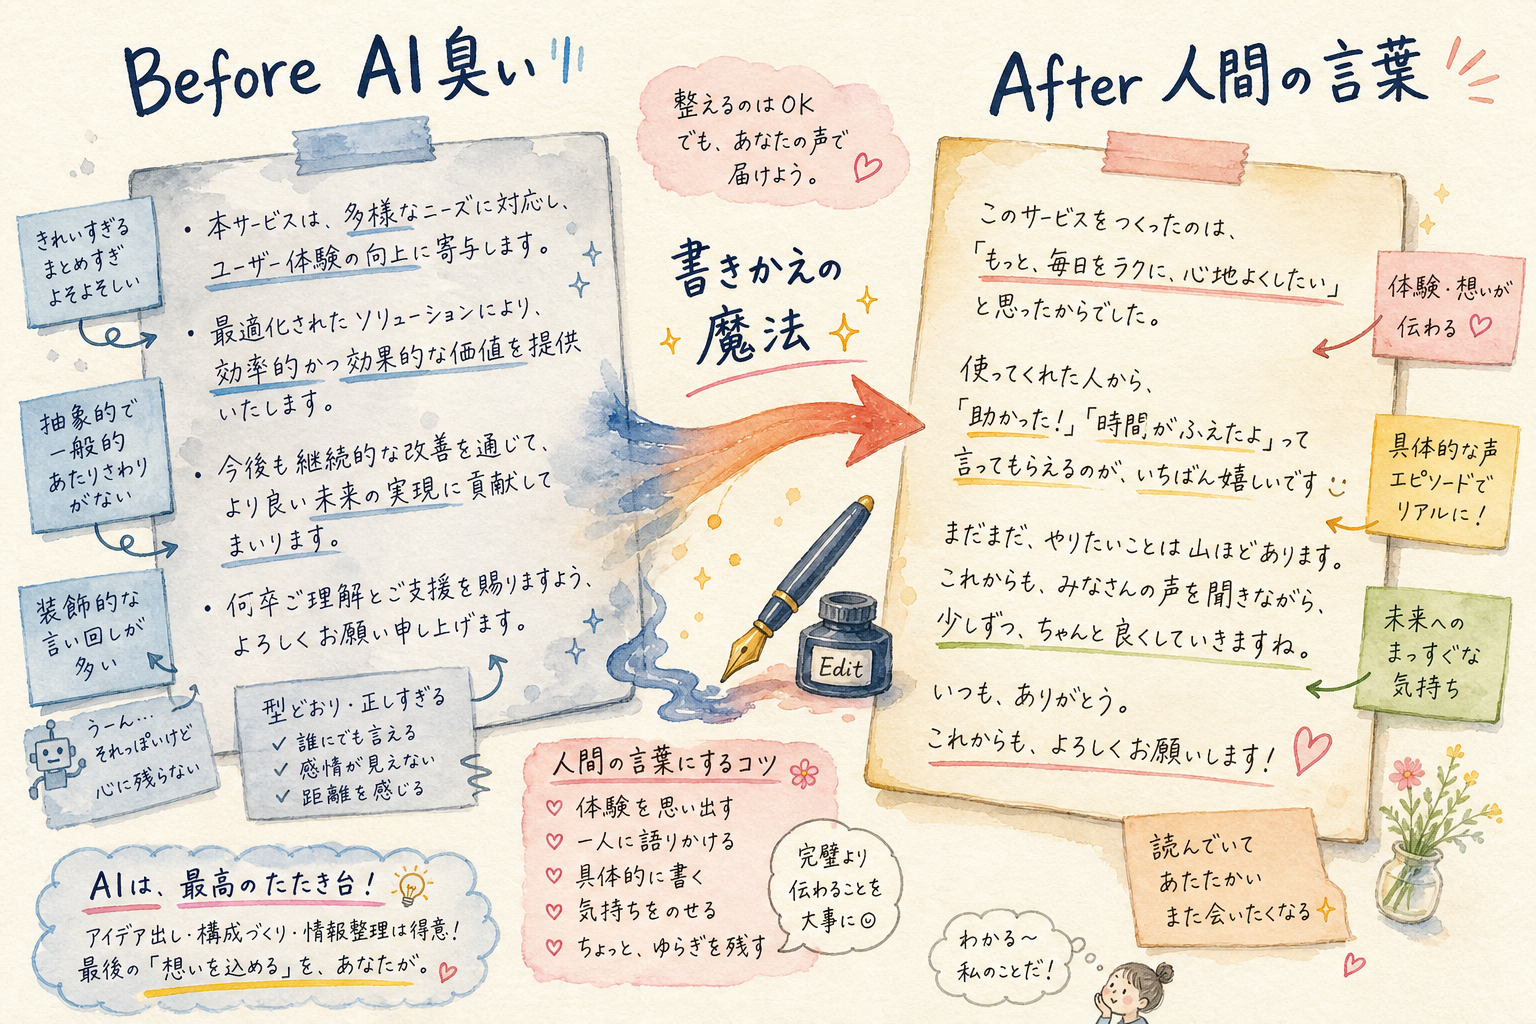 Before AI臭い
きれいすぎる
まとめすぎ
よそよそしい
抽象的で
一般的
あたりさわり
がない
装飾的な
言い回しが
多い
うーん…
それっぽいけど
心に残らない
・本サービスは、多様なニーズに対応し、
ユーザー体験の向上に寄与します。
・最適化されたソリューションにより、
効率的かつ効果的な価値を提供
いたします。
・今後も継続的な改善を通じて、
より良い未来の実現に貢献して
まいります。
・何卒ご理解とご支援を賜りますよう、
よろしくお願い申し上げます。
型どおり・正しすぎる
✓ 誰にでも言える
✓ 感情が見えない
✓ 距離を感じる
AIは、最高のたたき台！
アイデア出し・構成づくり・情報整理は得意！
最後の「想いを込める」を、あなたが。♡
整えるのはOK
でも、あなたの声で
届けよう。♡
書きかえの
魔法
Edit
人間の言葉にするコツ
♡ 体験を思い出す
♡ 一人に語りかける
♡ 具体的に書く
♡ 気持ちをのせる
♡ ちょっと、ゆらぎを残す
完璧より
伝わることを
大事に☺
After 人間の言葉
このサービスをつくったのは、
「もっと、毎日をラクに、心地よくしたい」
と思ったからでした。
使ってくれた人から、
「助かった！」「時間がふえたよ」って
言ってもらえるのが、いちばん嬉しいです
まだまだ、やりたいことは山ほどあります。
これからも、みなさんの声を聞きながら、
少しずつ、ちゃんと良くしていきますね。
いつも、ありがとう。
これからも、よろしくお願いします！
体験・想いが
伝わる♡
具体的な声
エピソードで
リアルに！
未来への
まっすぐな
気持ち
読んでいて
あたたかい
また会いたくなる
わかる〜
私のことだ！